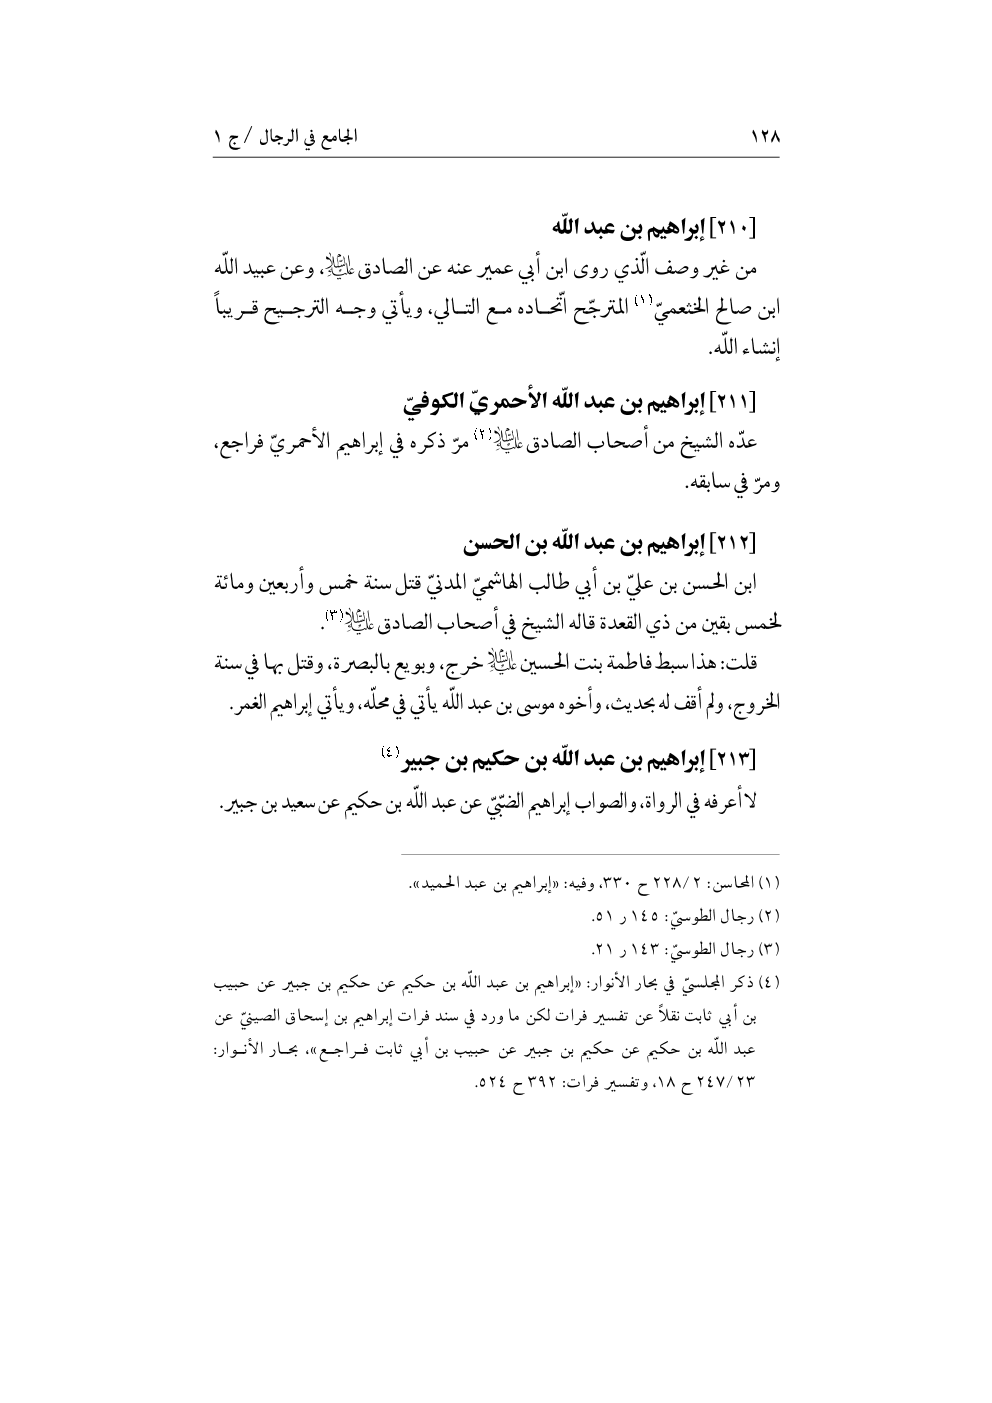 ١٢٨ الجامع في الرجال / ج ١
[٢١٠] إبراهيم بن عبد اللّه
من غير وصف الّذي روى ابن أبي عمير عنه عن الصادق عليه‌السلام، وعن عبيد اللّه
ابن صالح الخثعميّ(١) المترجّح اتّحاده مع التالي، ويأتي وجه الترجيح قريباً
إنشاء اللّه.
[٢١١] إبراهيم بن عبد اللّه الأحمريّ الكوفيّ
عدّه الشيخ من أصحاب الصادق عليه‌السلام(٢) مرّ ذكره في إبراهيم الأحمريّ فراجع،
ومرّ في سابقه.
[٢١٢] إبراهيم بن عبد اللّه بن الحسن
ابن الحسن بن عليّ بن أبي طالب الهاشميّ المدنيّ قتل سنة خمس وأربعين ومائة
لخمس بقين من ذي القعدة قاله الشيخ في أصحاب الصادق عليه‌السلام(٣).
قلت: هذا سبط فاطمة بنت الحسين عليه‌السلام خرج، وبويع بالبصرة، وقتل بها في سنة
الخروج، ولم أقف له بحديث، وأخوه موسى بن عبد اللّه يأتي في محلّه، ويأتي إبراهيم الغمر.
[٢١٣] إبراهيم بن عبد اللّه بن حكيم بن جبير(٤)
لا أعرفه في الرواة، والصواب إبراهيم الضبّيّ عن عبد اللّه بن حكيم عن سعيد بن جبير.
(١) المحاسن: ٢/ ٢٢٨ ح ٣٣٠، وفيه: «إبراهيم بن عبد الحميد».
(٢) رجال الطوسيّ: ١٤٥ ر ٥١.
(٣) رجال الطوسيّ: ١٤٣ ر ٢١.
(٤) ذكر المجلسيّ في بحار الأنوار: «إبراهيم بن عبد اللّه بن حكيم عن حكيم بن جبير عن حبيب
بن أبي ثابت نقلاً عن تفسير فرات لكن ما ورد في سند فرات إبراهيم بن إسحاق الصينيّ عن
عبد اللّه بن حكيم عن حكيم بن جبير عن حبيب بن أبي ثابت فراجع»، بحار الأنوار:
٢٣/ ٢٤٧ ح ١٨، وتفسير فرات: ٣٩٢ ح ٥٢٤.